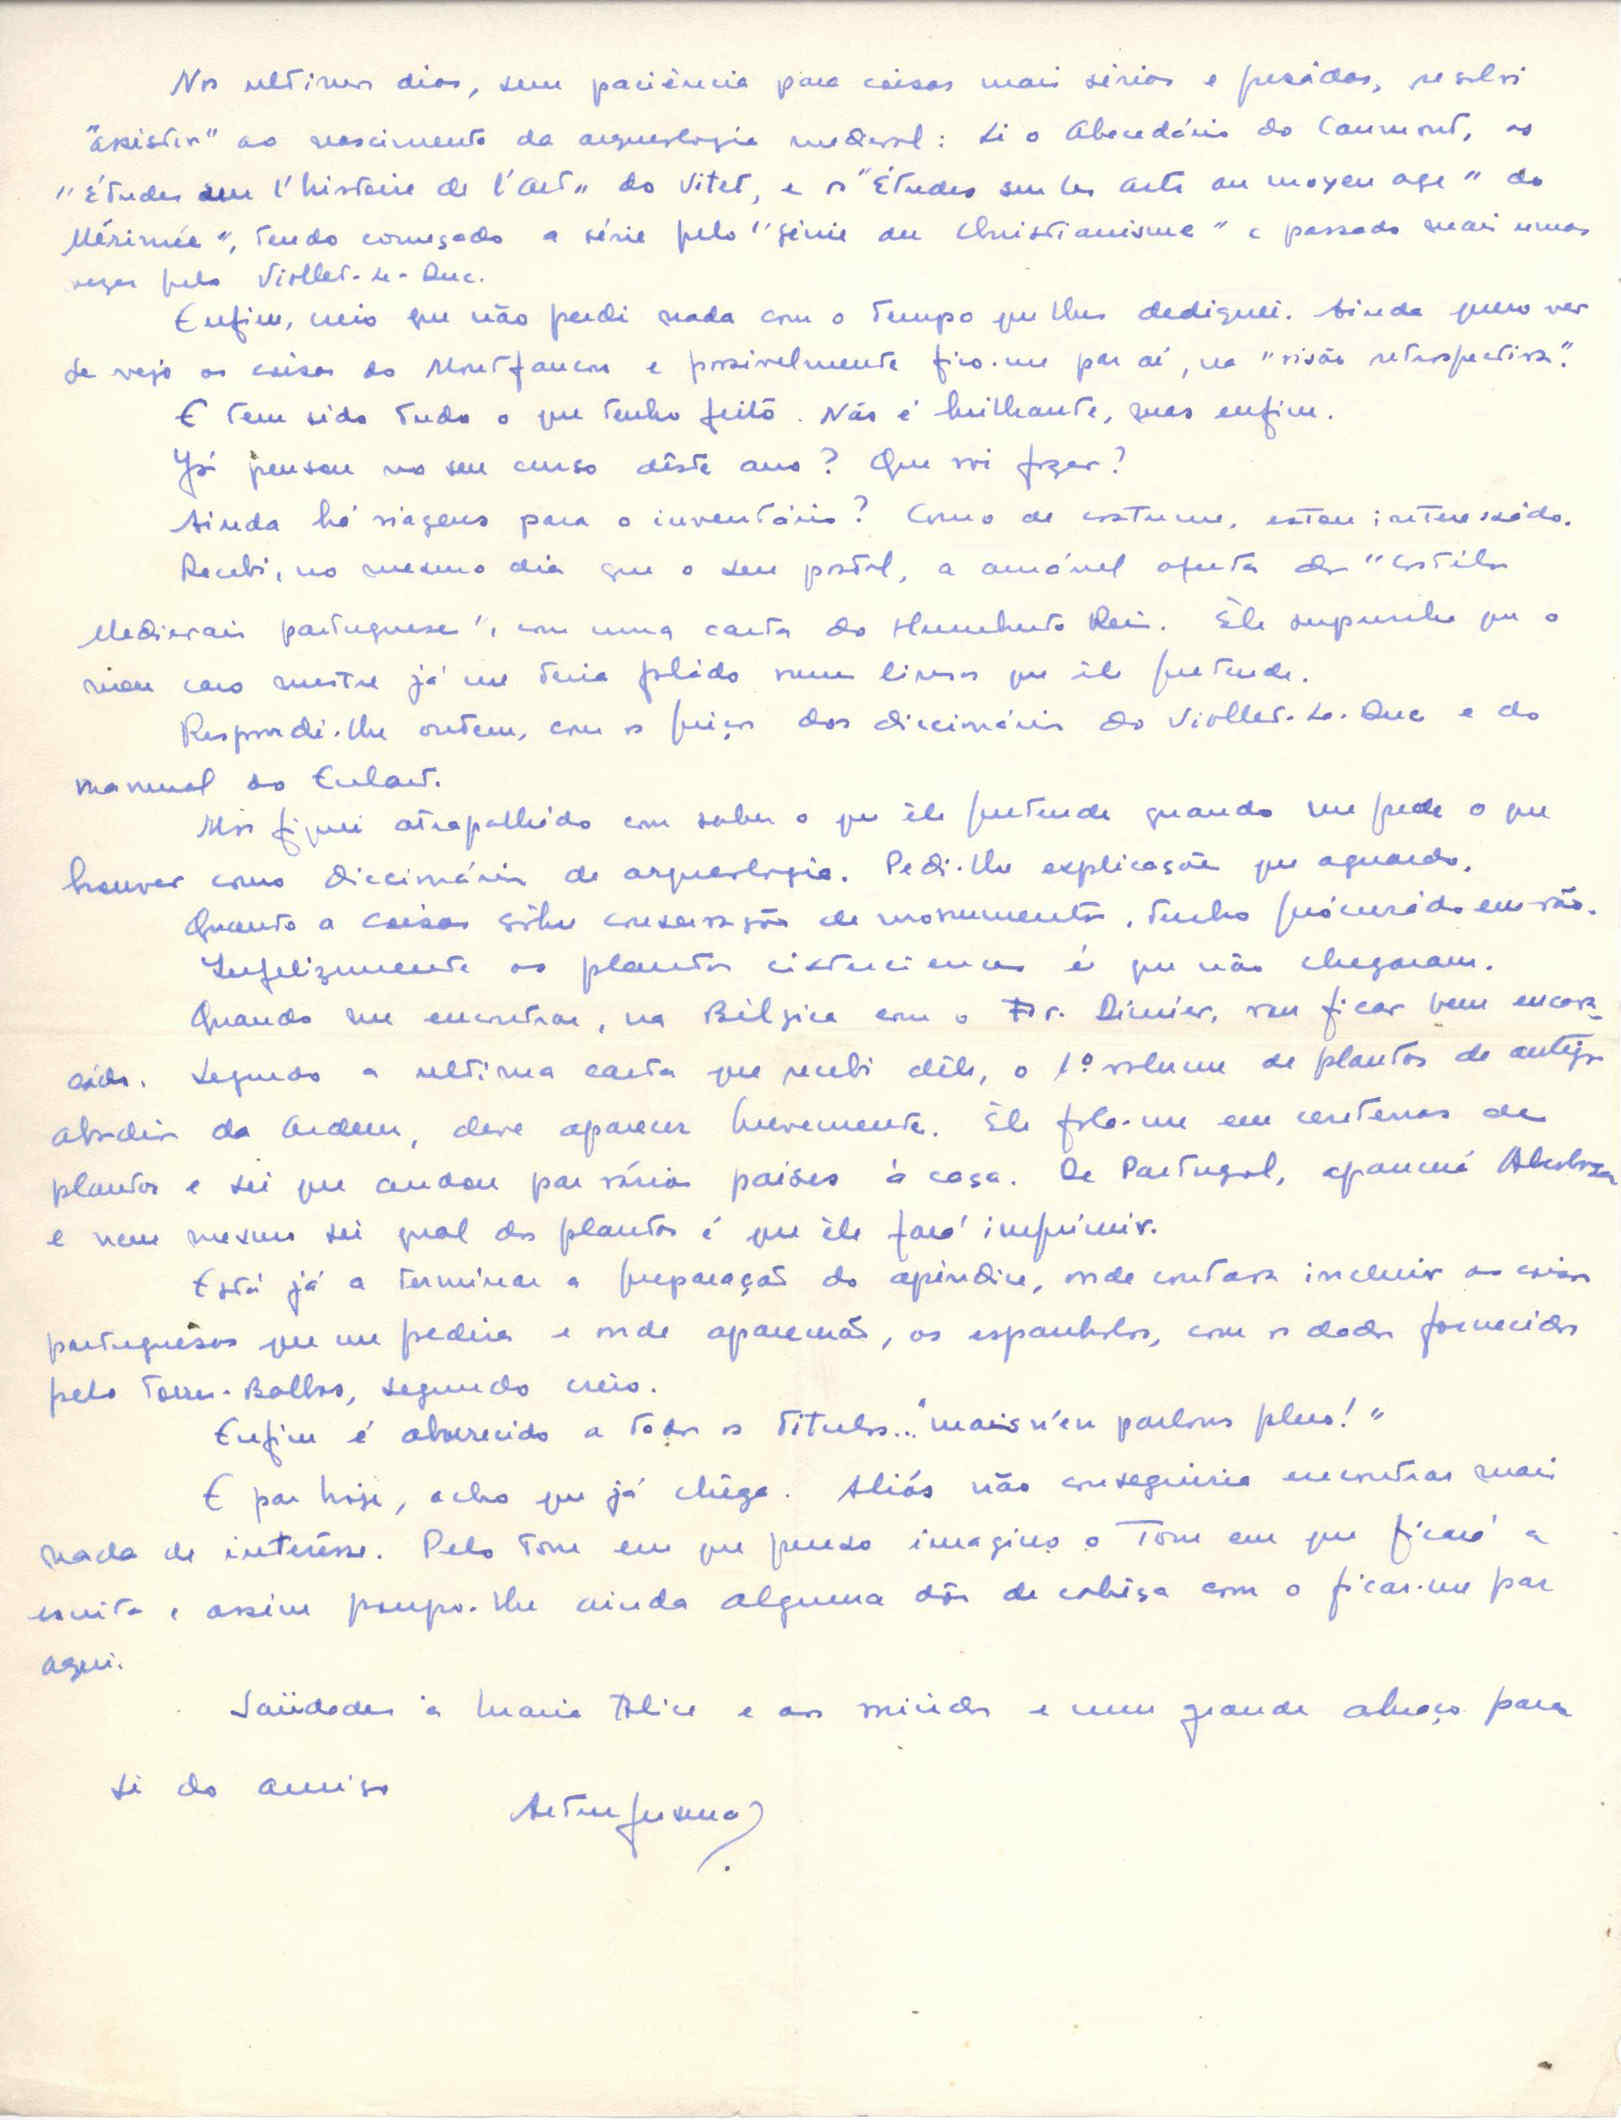 Nos ultimos dias, sem paciência para coisas mais sérias e pesadas, resolvi
"assistir" ao nascimento da arqueologia medieval: Li o Abecedário do Caumont, os
"Études sur l'histoire de l'art" do Vitet, e os "Études sur les arts au moyen age" do
Mérimée", tendo começado a série pelo "génie du Christianisme" e passado mais umas
vezes pelo Viollet-le-Duc.
Enfim, creio que não perdi nada com o tempo que lhes dediquei. Ainda quero ver
se vejo as coisas do Montfaucon e possivelmente fico-me por aí, na "visão retrospectiva".
E tem sido tudo o que tenho feito. Não é brilhante, mas enfim.
Já pensou no seu curso dêste ano? Que vai fazer?
Ainda há viagens para o inventário? Como de costume, estou interessado.
Recebi, no mesmo dia que o seu postal, a amável oferta dos "Castelos
Medievais portugueses", com uma carta do Humberto Reis. Êle supunha que o
meu caro mestre já me teria falado nuns livros que êle pretende.
Respondi-lhe ontem, com os preços dos diccionários do Viollet-le-Duc e do
manual do Enlart.
Mas fiquei atrapalhado com saber o que êle pretende quando me pede o que
houver como diccionários de arqueologia. Pedi-lhe explicações que aguardo.
Quanto a coisas sôbre conservação de monumentos, tenho procurado em vão.
Infelizmente as plantas cistercienses é que não chegaram.
Quando me encontrar, na Bélgica com o Fr. Dimier, vou ficar bem encava-
cado. Segundo a ultima carta que recebi dêle, o 1º volume de plantas de antigas
abadias da Ordem, deve aparecer brevemente. Êle fala-me em centenas de
plantas e sei que andou por vários países à caça. De Portugal, aparecerá Alcobaça
e nem mesmo sei qual das plantas é que êle fará imprimir.
Está já a terminar a preparação do apêndice, onde contava incluir as coisas
portuguesas que me pedira e onde aparecerão, as espanholas, com os dados fornecidos
pelo Torres-Balbas, segundo creio.
Enfim é aborrecido a todos os titulos... "mais n'en parlons plus!"
E por hoje, acho que já chega. Aliás não conseguiria encontrar mais
nada de interêsse. Pelo tom em que penso imagino o tom em que ficará a
escrita e assim poupo-lhe ainda alguma dôr de cabêça com o ficar-me por
aqui.
Saüdades à Maria Alice e aos miúdos e um grande abraço para
si do amigo
Artur